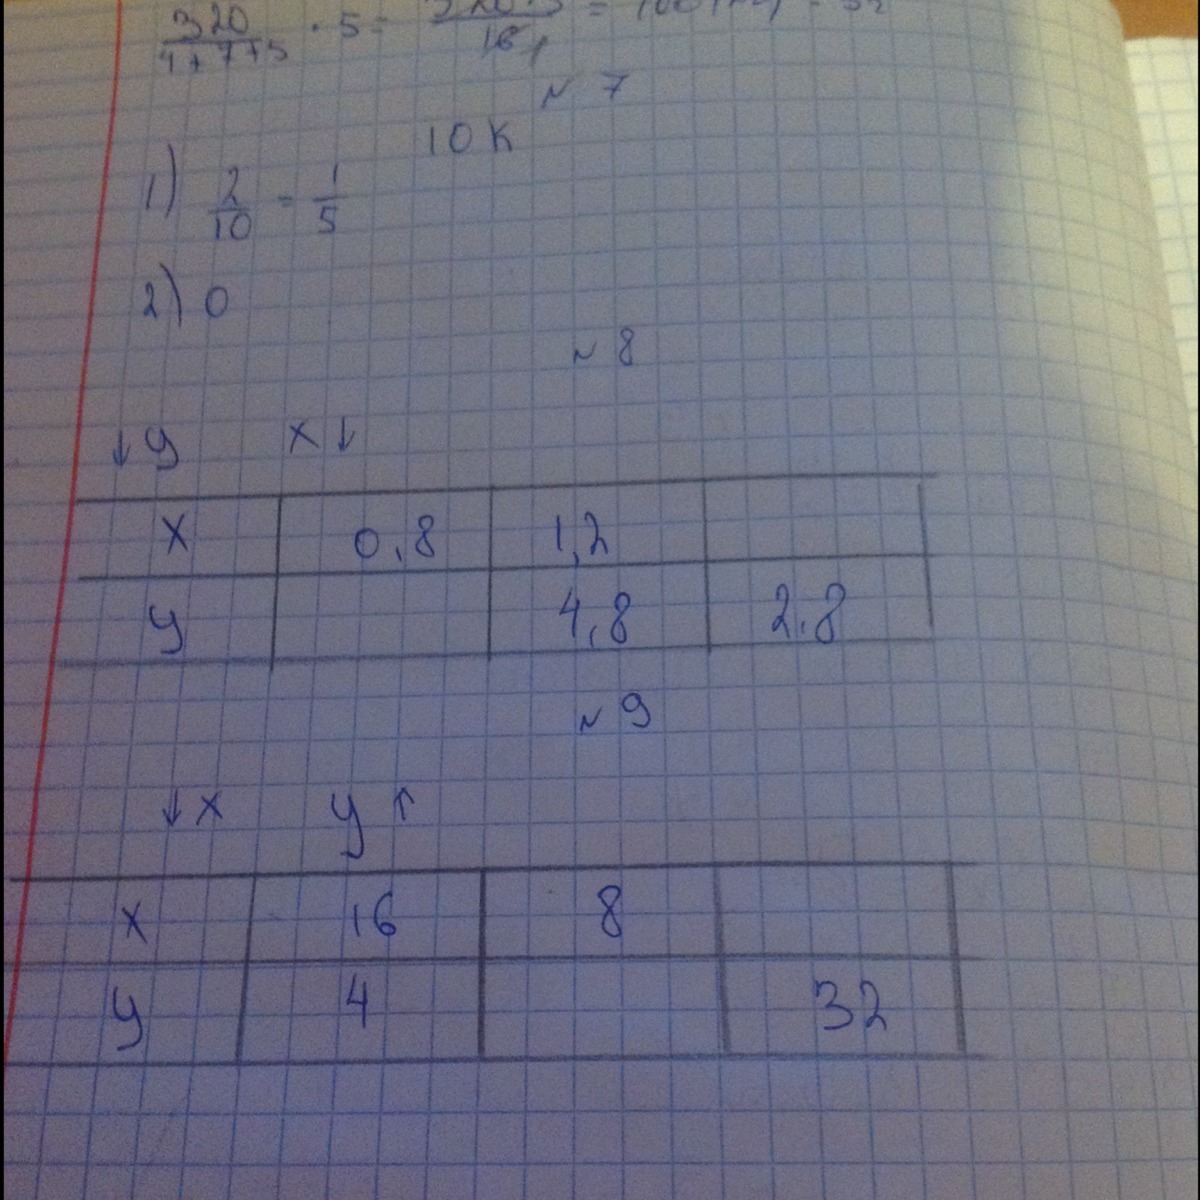 320/(4+7+5) · 5 =
16
№ 7
10 к
1) 2/10 = 1/5
2) 0
№ 8
↓ y x ↓
x 0,8 1,2
y 4,8 2,8
№ 9
↓ x y ↑
x 16 8
y 4 32